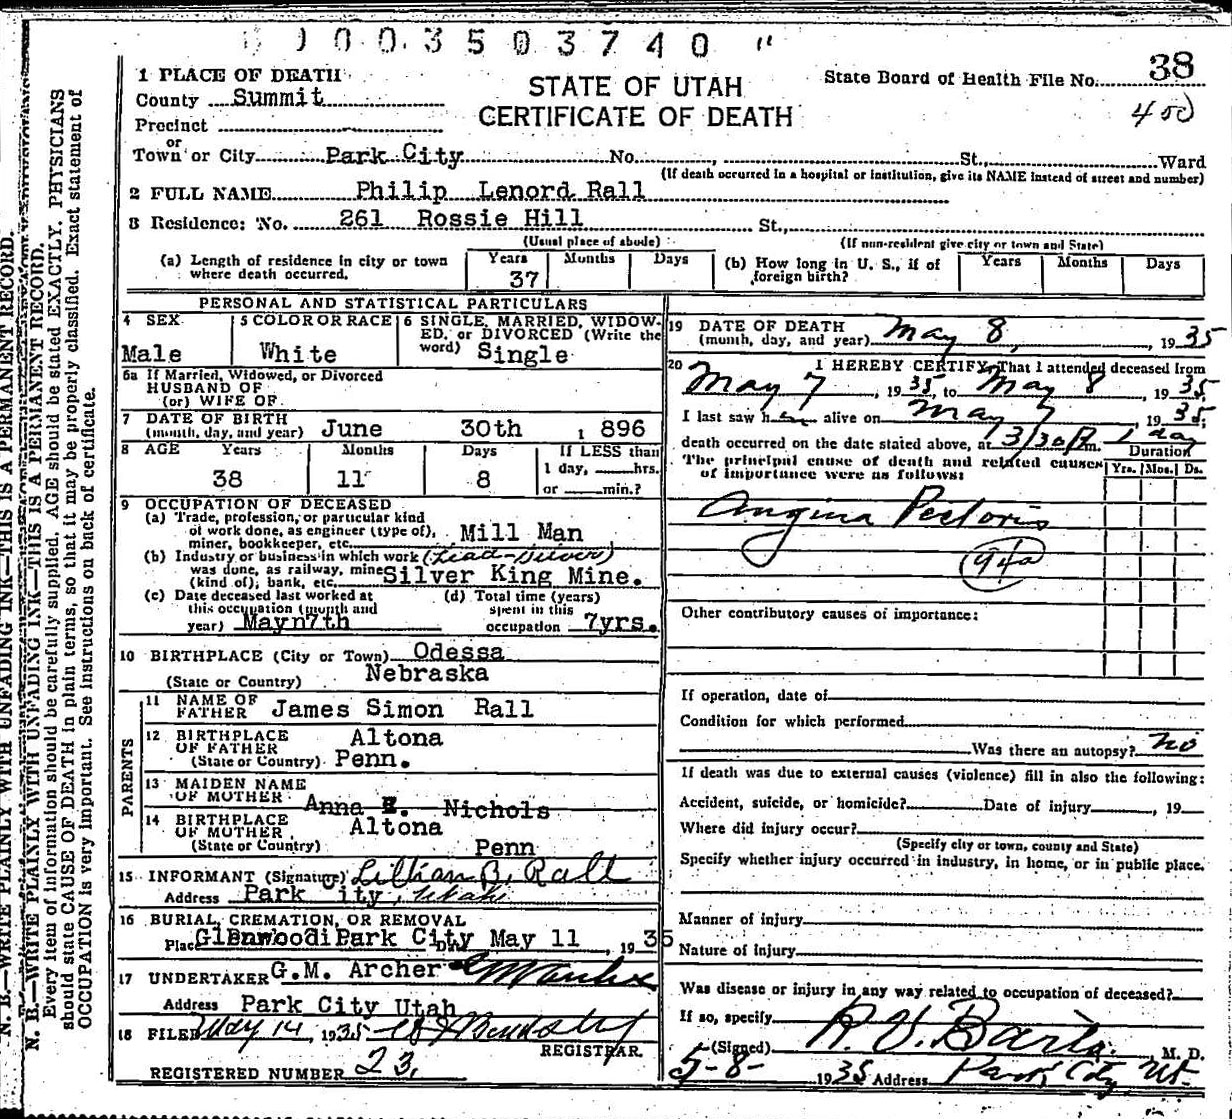 003503740 "
1 PLACE OF DEATH
County Summit
Precinct
or
Town or City Park City No. , St., Ward
STATE OF UTAH
CERTIFICATE OF DEATH
State Board of Health File No. 38
400
(If death occurred in a hospital or institution, give its NAME instead of street and number)
2 FULL NAME Philip Lenord Rall
3 Residence: No. 261 Rossie Hill St.,
(Usual place of abode) (If non-resident give city or town and State)
(a) Length of residence in city or town where death occurred. Years 37 Months Days
(b) How long in U. S., if of foreign birth? Years Months Days
PERSONAL AND STATISTICAL PARTICULARS
4 SEX Male
5 COLOR OR RACE White
6 SINGLE, MARRIED, WIDOWED, or DIVORCED (Write the word) Single
6a If Married, Widowed, or Divorced
HUSBAND OF
(or) WIFE OF
7 DATE OF BIRTH
(month, day, and year) June 30th 1896
8 AGE Years 38 Months 11 Days 8 If LESS than
1 day, hrs.
or min.?
9 OCCUPATION OF DECEASED
(a) Trade, profession, or particular kind
of work done, as engineer (type of),
miner, bookkeeper, etc. Mill Man
(b) Industry or business in which work (Lead-Silver)
was done, as railway, mine
(kind of); bank, etc. Silver King Mine.
(c) Date deceased last worked at
this occupation (month and
year) Mayn7th
(d) Total time (years)
spent in this
occupation 7yrs.
10 BIRTHPLACE (City or Town) Odessa
(State or Country) Nebraska
PARENTS
11 NAME OF
FATHER James Simon Rall
12 BIRTHPLACE
OF FATHER Altona
(State or Country) Penn.
13 MAIDEN NAME
OF MOTHER Anna E. Nichols
14 BIRTHPLACE
OF MOTHER Altona
(State or Country) Penn
15 INFORMANT (Signature) Lillian B. Rall
Address Park City, Utah
16 BURIAL, CREMATION, OR REMOVAL
Place Glenwood Park City May 11, 1935
17 UNDERTAKER G.M. Archer GM Archer
Address Park City Utah
18 FILED May 14, 1935
REGISTRAR.
REGISTERED NUMBER 23,
19 DATE OF DEATH
(month, day, and year) May 8, , 1935
20 I HEREBY CERTIFY, That I attended deceased from
May 7, 1935, to May 8, 1935;
I last saw h alive on May 7, 1935;
death occurred on the date stated above, at 3/30 P m. 1 day
Duration
The principal cause of death and related causes
of importance were as follows: Yrs. Mos. Ds.
Angina Pectoris
94a
Other contributory causes of importance:
If operation, date of
Condition for which performed
Was there an autopsy? no
If death was due to external causes (violence) fill in also the following:
Accident, suicide, or homicide? Date of injury , 19
Where did injury occur?
(Specify city or town, county and State)
Specify whether injury occurred in industry, in home, or in public place.
Manner of injury
Nature of injury
Was disease or injury in any way related to occupation of deceased?
If so, specify
(Signed) , M. D.
5-8- 1935 Address Park City Ut.
N. B.—WRITE PLAINLY WITH UNFADING INK—THIS IS A PERMANENT RECORD.
N. B.—WRITE PLAINLY WITH UNFADING INK—THIS IS A PERMANENT RECORD.
Every item of information should be carefully supplied. AGE should be stated EXACTLY. PHYSICIANS
should state CAUSE OF DEATH in plain terms, so that it may be properly classified. Exact statement of
OCCUPATION is very important. See instructions on back of certificate.